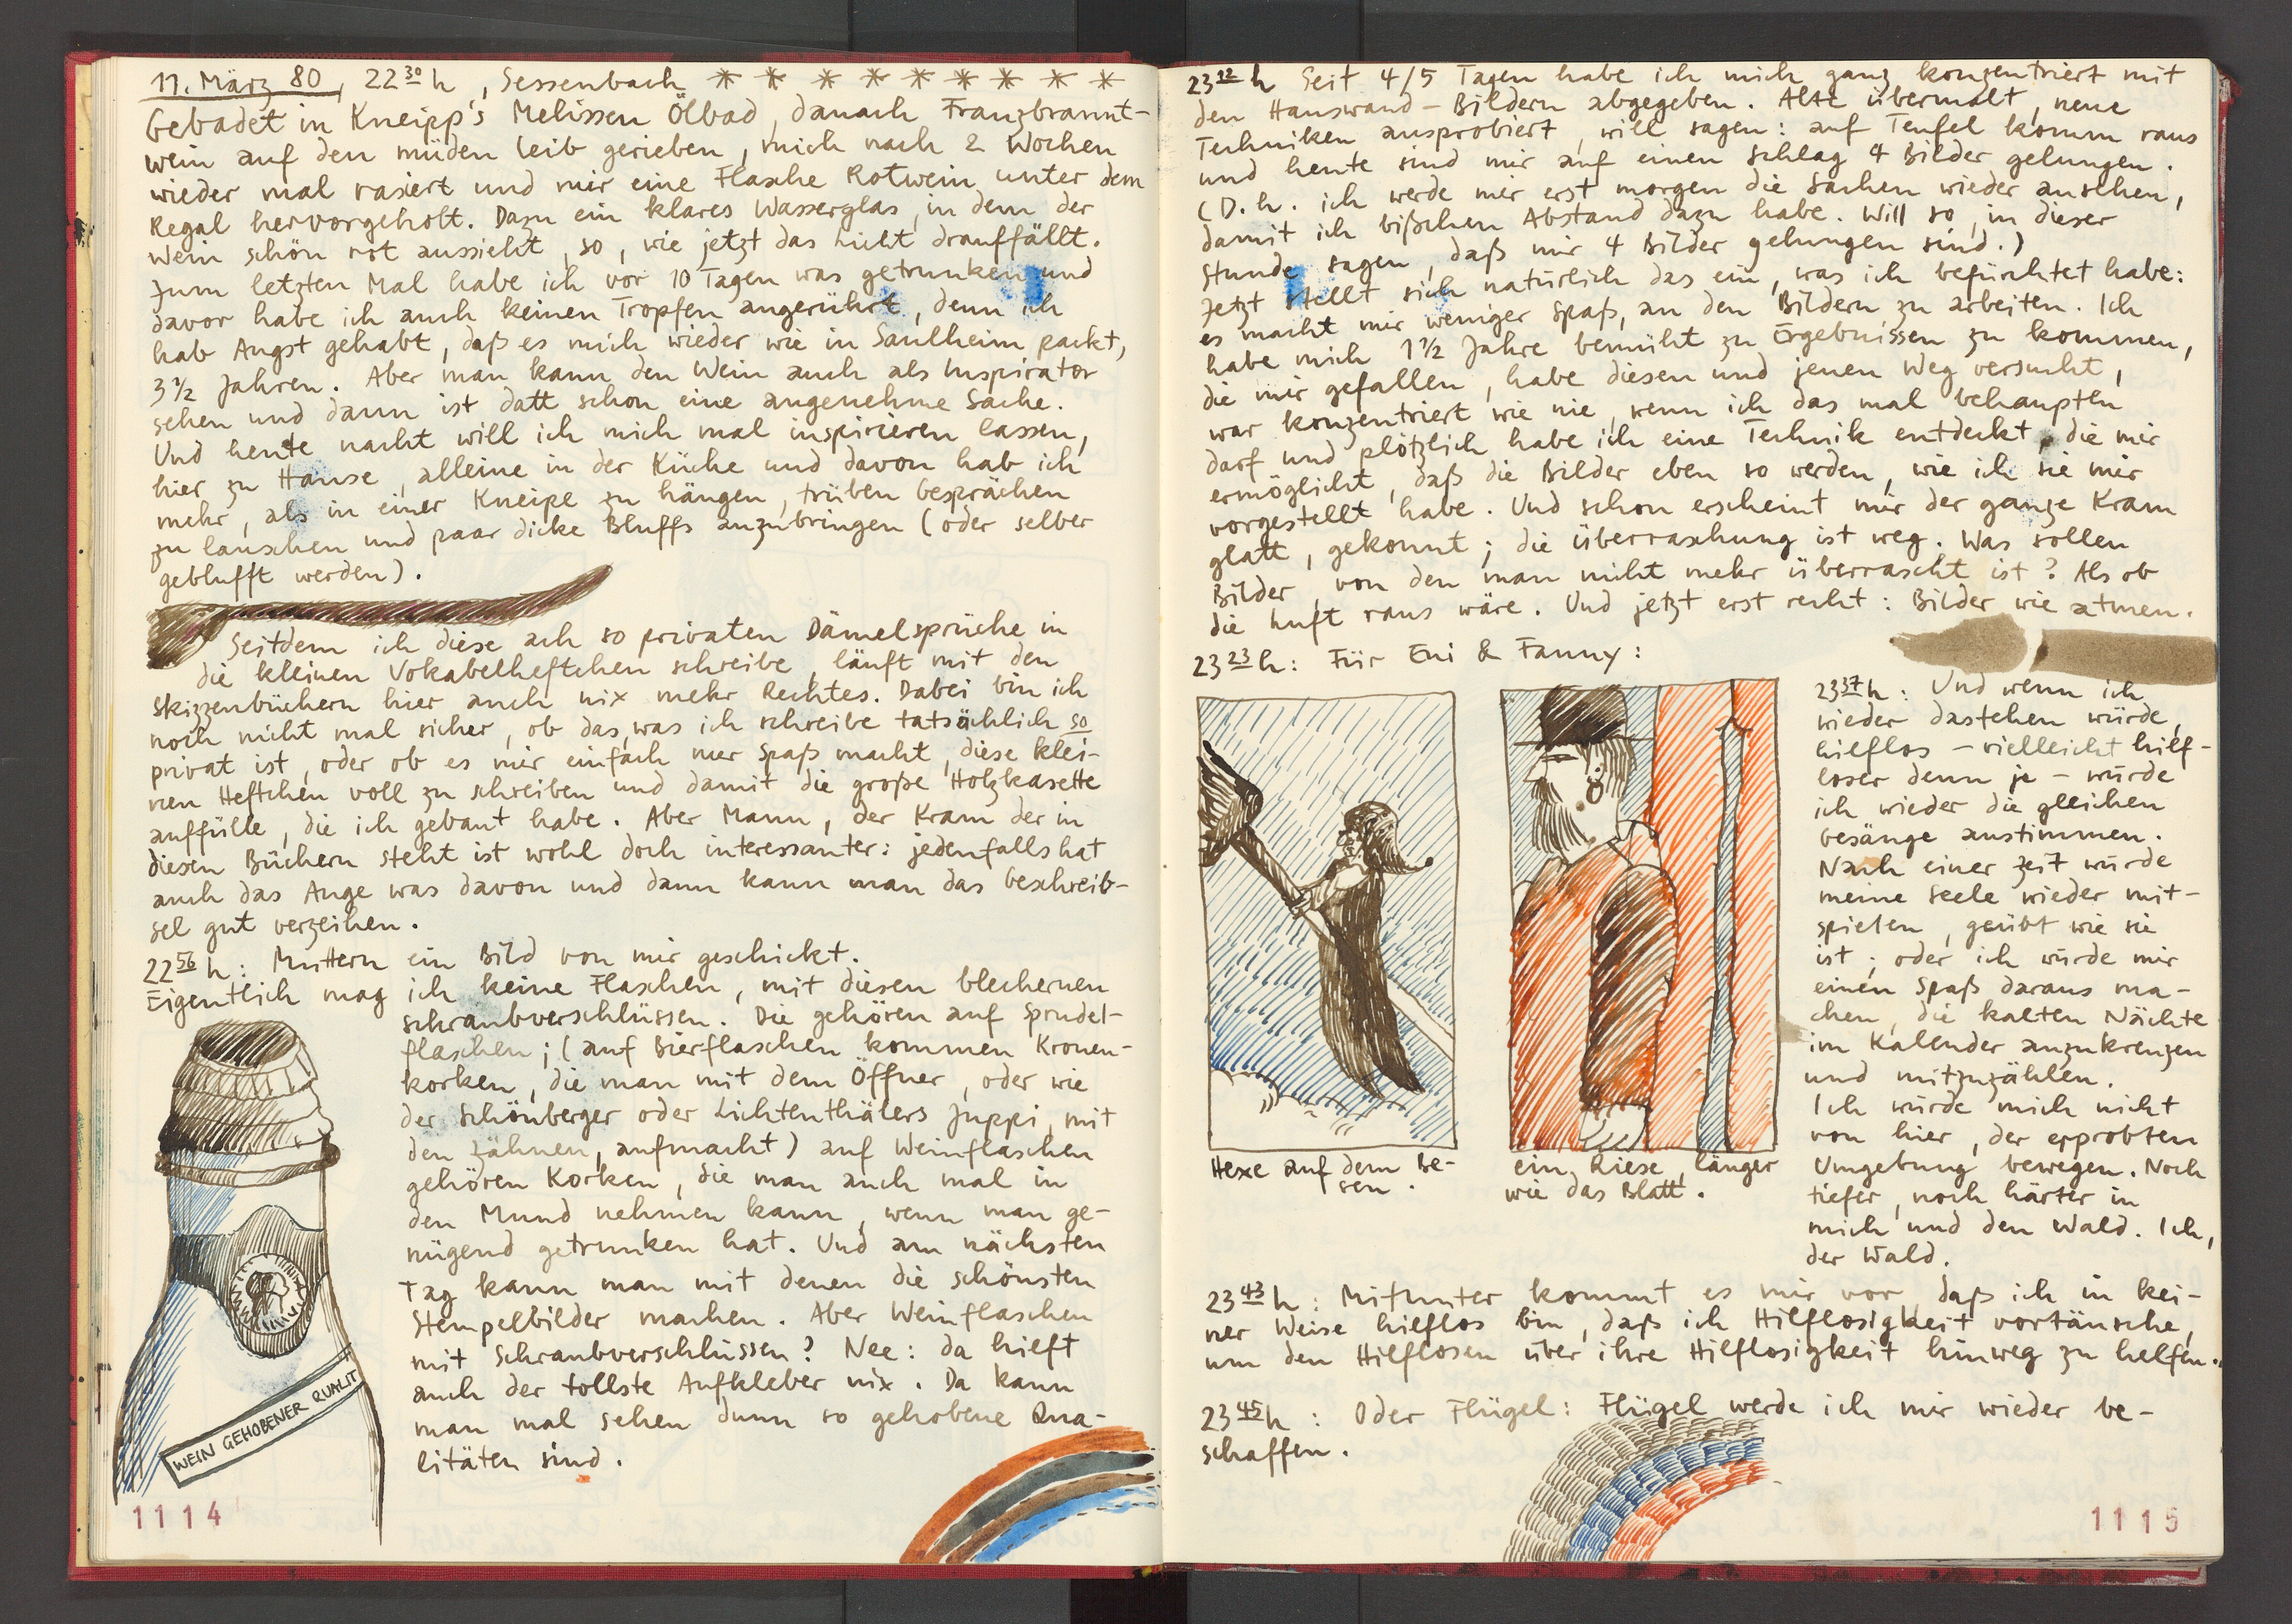 11. März 80, 22 30 h, Sessenbach * * * * * * * * *
Gebadet in Kneipp's Melissen Ölbad, danach Franzbrannt-
wein auf den müden Leib gerieben, mich nach 2 Wochen
wieder mal rasiert und mir eine Flasche Rotwein unter dem
Regal hervorgeholt. Dazu ein klares Wasserglas, in dem der
Wein schön rot aussieht, so, wie jetzt das Licht drauffällt.
Zum letzten Mal habe ich vor 10 Tagen was getrunken und
davor habe ich auch keinen Tropfen angerührt, denn ich
hab Angst gehabt, daß es mich wieder wie in Saulheim packt,
3 1/2 Jahren. Aber man kann den Wein auch als Inspirator
sehen und dann ist datt schon eine angenehme Sache.
Und heute nacht will ich mich mal inspirieren lassen,
hier zu Hause, alleine in der Küche und davon hab ich
mehr, als in einer Kneipe zu hängen, trüben Gesprächen
zu lauschen und paar dicke Bluffs anzubringen (oder selber
geblufft werden).
Seitdem ich diese ach so privaten Dämelsprüche in
die kleinen Vokabelheftchen schreibe, läuft mit den
Skizzenbüchern hier auch nix mehr Rechtes. Dabei bin ich
noch nicht mal sicher, ob das, was ich schreibe tatsächlich so
privat ist, oder ob es mir einfach nur Spaß macht, diese klei-
nen Heftchen voll zu schreiben und damit die große Holzkasette
auffülle, die ich gebaut habe. Aber Mann, der Kram der in
diesen Büchern steht ist wohl doch interessanter: jedenfalls hat
auch das Auge was davon und dann kann man das Geschreib-
sel gut verzeihen.
22 56 h: Muttern ein Bild von mir geschickt.
Eigentlich mag ich keine Flaschen, mit diesen blechernen
Schraubverschlüssen. Die gehören auf Sprudel-
flaschen; (auf Bierflaschen kommen Kronen-
korken, die man mit dem Öffner, oder wie
der Schönberger oder Lichtenthälers Juppi, mit
den Zähnen, aufmacht) auf Weinflaschen
gehören Korken, die man auch mal in
den Mund nehmen kann, wenn man ge-
nügend getrunken hat. Und am nächsten
Tag kann man mit denen die schönsten
Stempelbilder machen. Aber Weinflaschen
mit Schraubverschlüssen? Nee: da hilft
auch der tollste Aufkleber nix. Da kann
man mal sehen dunn so gehobene Qua-
litäten sind.
WEIN GEHOBENER QUALIT
1114
23 12 h Seit 4/5 Tagen habe ich mich ganz konzentriert mit
den Hauswand-Bildern abgegeben. Alte übermalt, neue
Techniken ausprobiert, will sagen: auf Teufel komm raus
und heute sind mir auf einen Schlag 4 Bilder gelungen.
(D.h. ich werde mir erst morgen die Sachen wieder ansehen,
damit ich bißchen Abstand dazu habe. Will so, in dieser
Stunde sagen, daß mir 4 Bilder gelungen sind.)
Jetzt stellt sich natürlich das ein, was ich befürchtet habe:
es macht mir weniger Spaß, an den Bildern zu arbeiten. Ich
habe mich 1 1/2 Jahre bemüht zu Ergebnissen zu kommen,
die mir gefallen, habe diesen und jenen Weg versucht,
war konzentriert wie nie, wenn ich das mal behaupten
darf und plötzlich habe ich eine Technik entdeckt, die mir
ermöglicht, daß die Bilder eben so werden, wie ich sie mir
vorgestellt habe. Und schon erscheint mir der ganze Kram
glatt, gekonnt; die Überraschung ist weg. Was sollen
Bilder, von den man nicht mehr überrascht ist? Als ob
die Luft raus wäre. Und jetzt erst recht: Bilder wie atmen.
23 23 h: Für Eni & Fanny:
Hexe auf dem Be-
sen.
ein Riese, länger
wie das Blatt.
23 37 h: Und wenn ich
wieder dastehen würde,
hilflos – vielleicht hilf-
loser denn je – würde
ich wieder die gleichen
Gesänge anstimmen.
Nach einer Zeit würde
meine Seele wieder mit-
spielen, geübt wie sie
ist; oder ich würde mir
einen Spaß daraus ma-
chen, die kalten Nächte
im Kalender anzukreuzen
und mitzuzählen.
Ich würde mich nicht
von hier, der erprobten
Umgebung bewegen. Noch
tiefer, noch härter in
mich und den Wald. Ich,
der Wald.
23 43 h: Mitunter kommt es mir vor, daß ich in kei-
ner Weise hilflos bin, daß ich Hilflosigkeit vortäusche,
um den Hilflosen über ihre Hilflosigkeit hinweg zu helfen.
23 45 h: Oder Flügel: Flügel werde ich mir wieder be-
schaffen.
1115